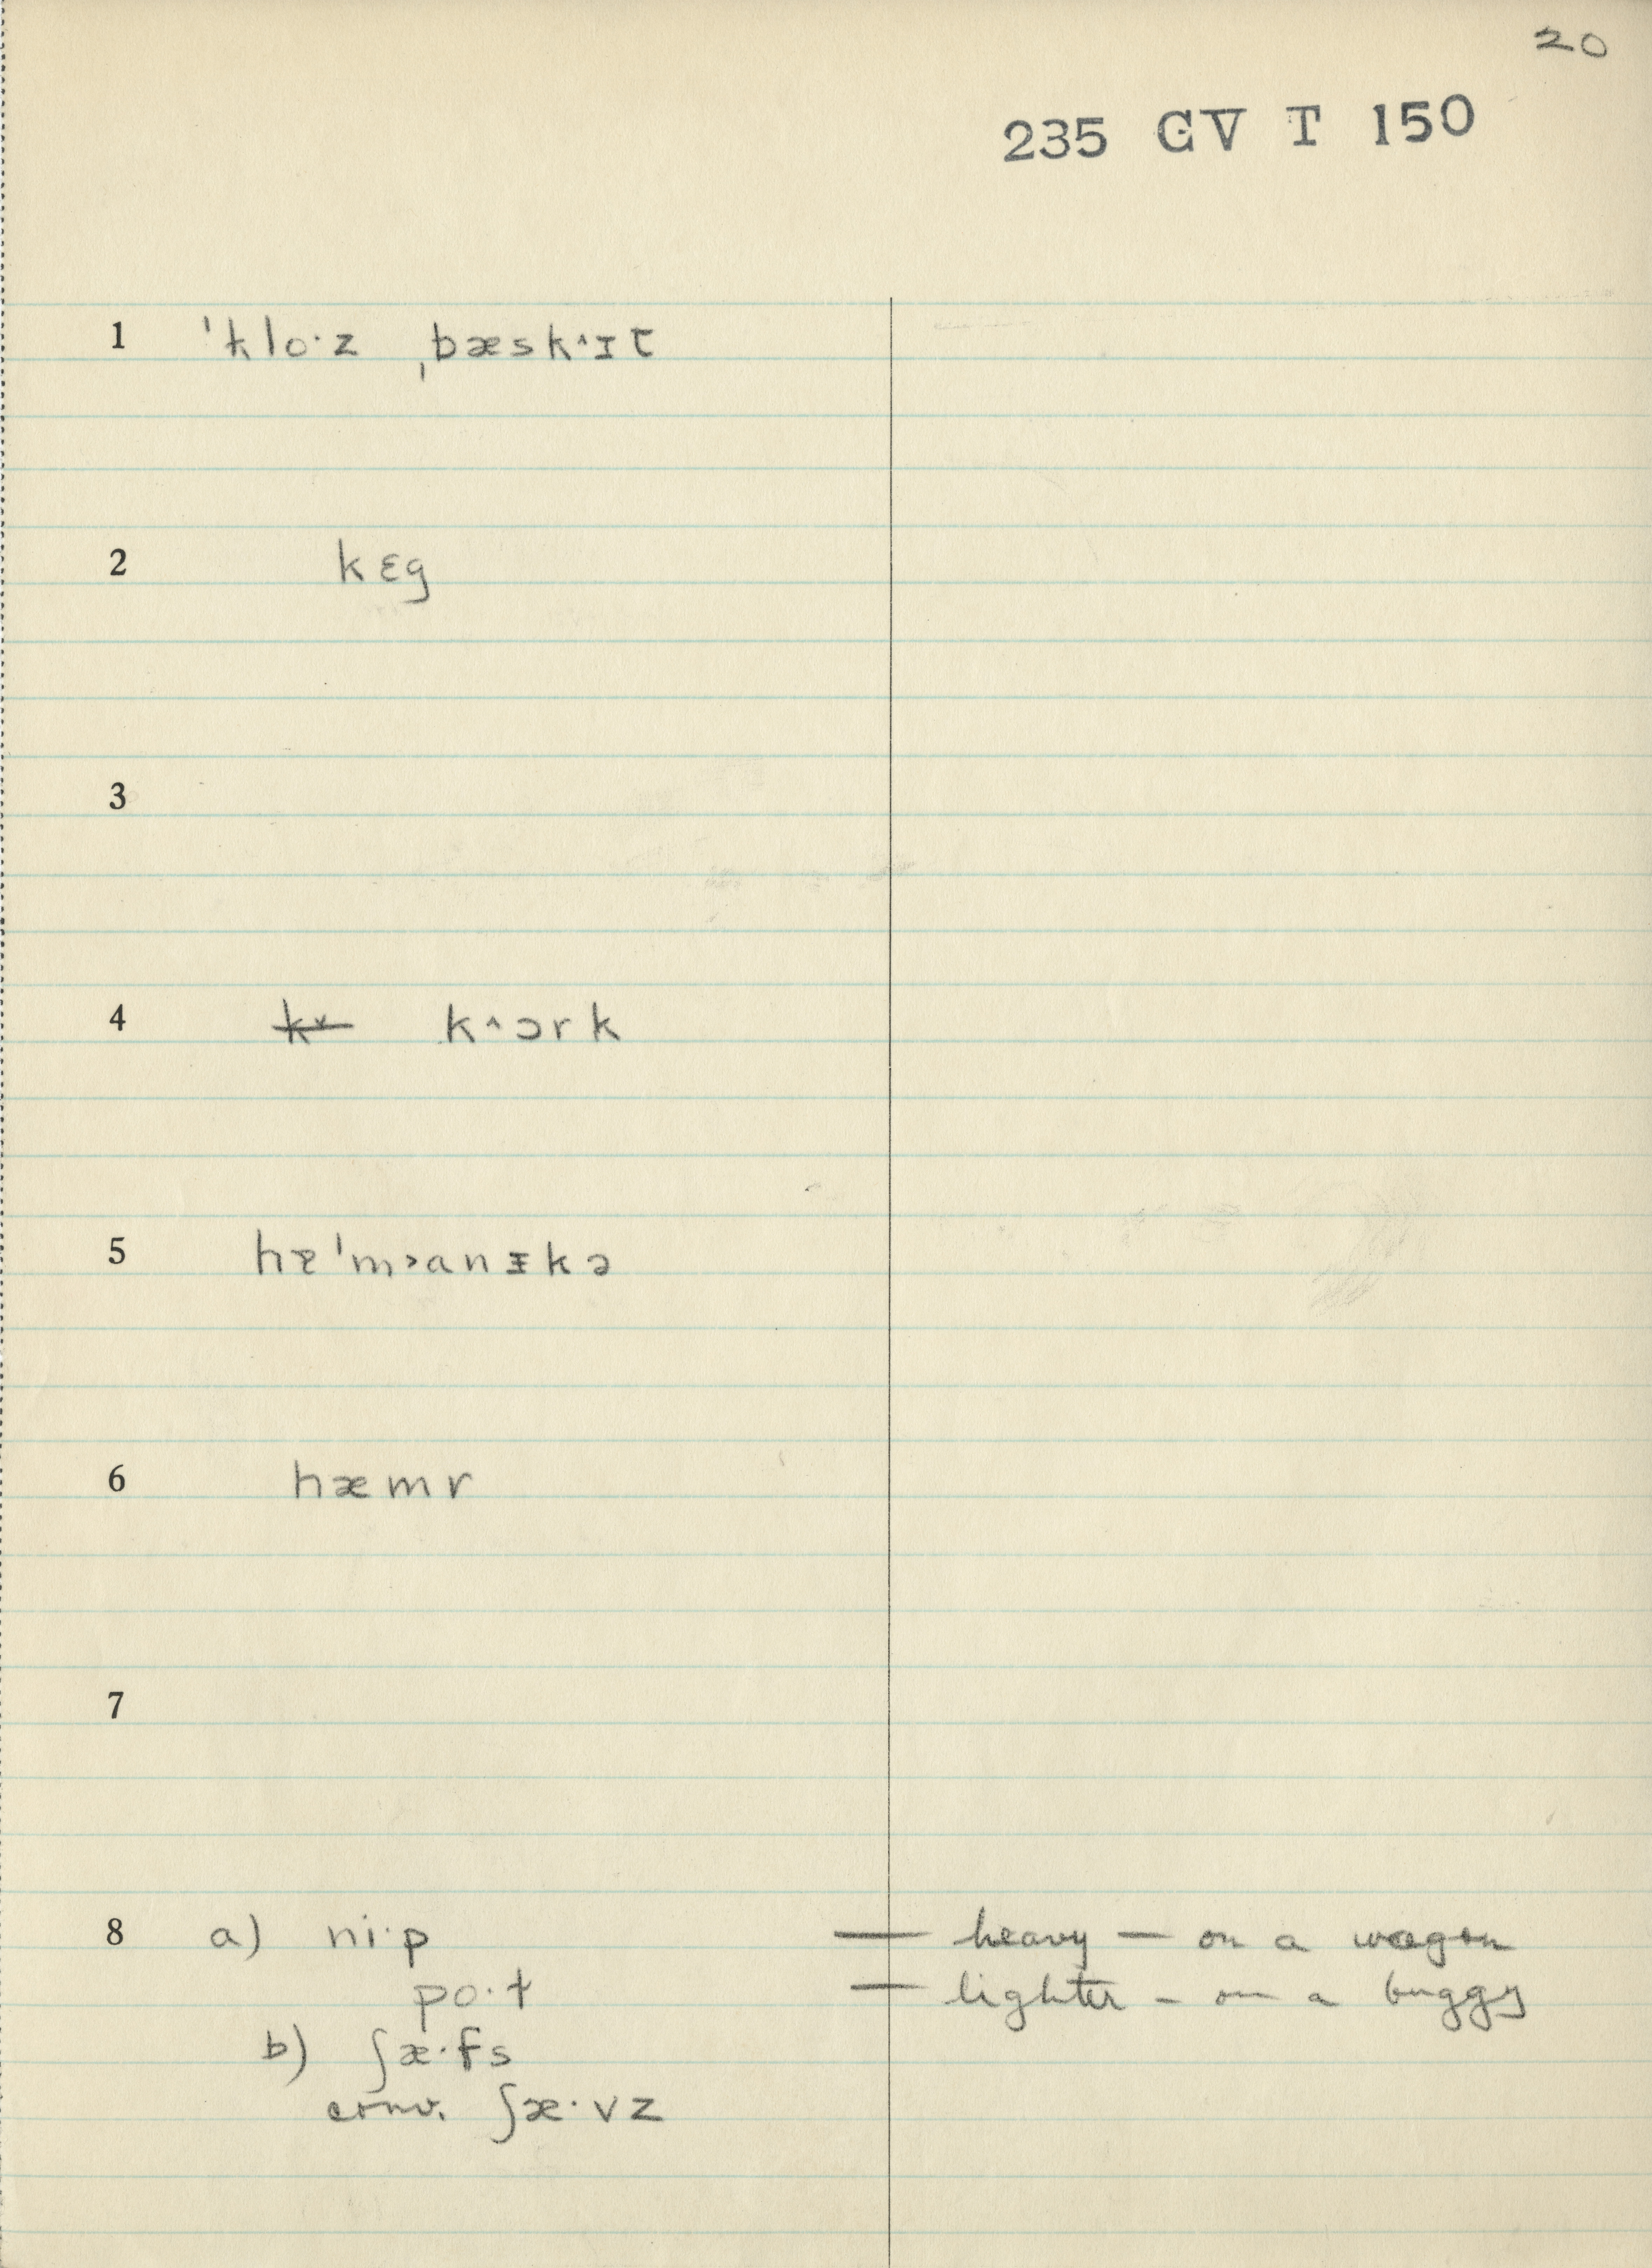 20
235 GV T 150
1 ˈkloˑz ˌbæsk˄ɪt
2 kɛg
3
4 k˅ k˄ɔrk
5 hɐˈm˃anᵻkə
6 hæmr
7
8 a) niˑp — heavy — on a wagon
poˑt — lighter – on a buggy
b) ʃæˑfs
conv. ʃæˑvz